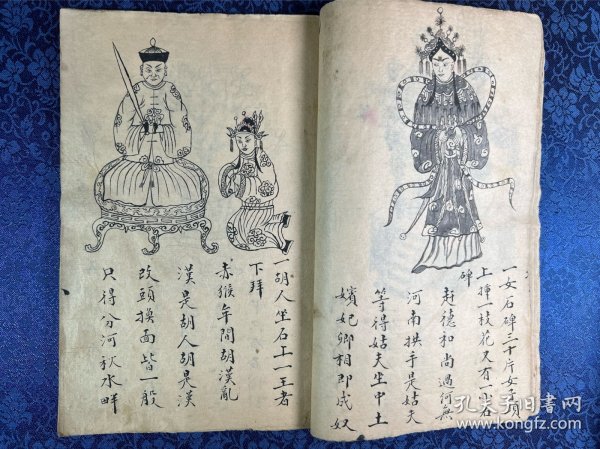 一女石碑三十片女子頂
上挿一枝花又有一小石
碑
赶德和尚過河無
河南拱手是姑夫
等得姑夫坐中土
嬪妃卿相即成奴
一胡人坐石上一王者
下拜
赤猴年間胡漢亂
漢是胡人胡是漢
改頭換面皆一般
只得分河秋水畔
孔夫子旧书网
www.kongfz.com